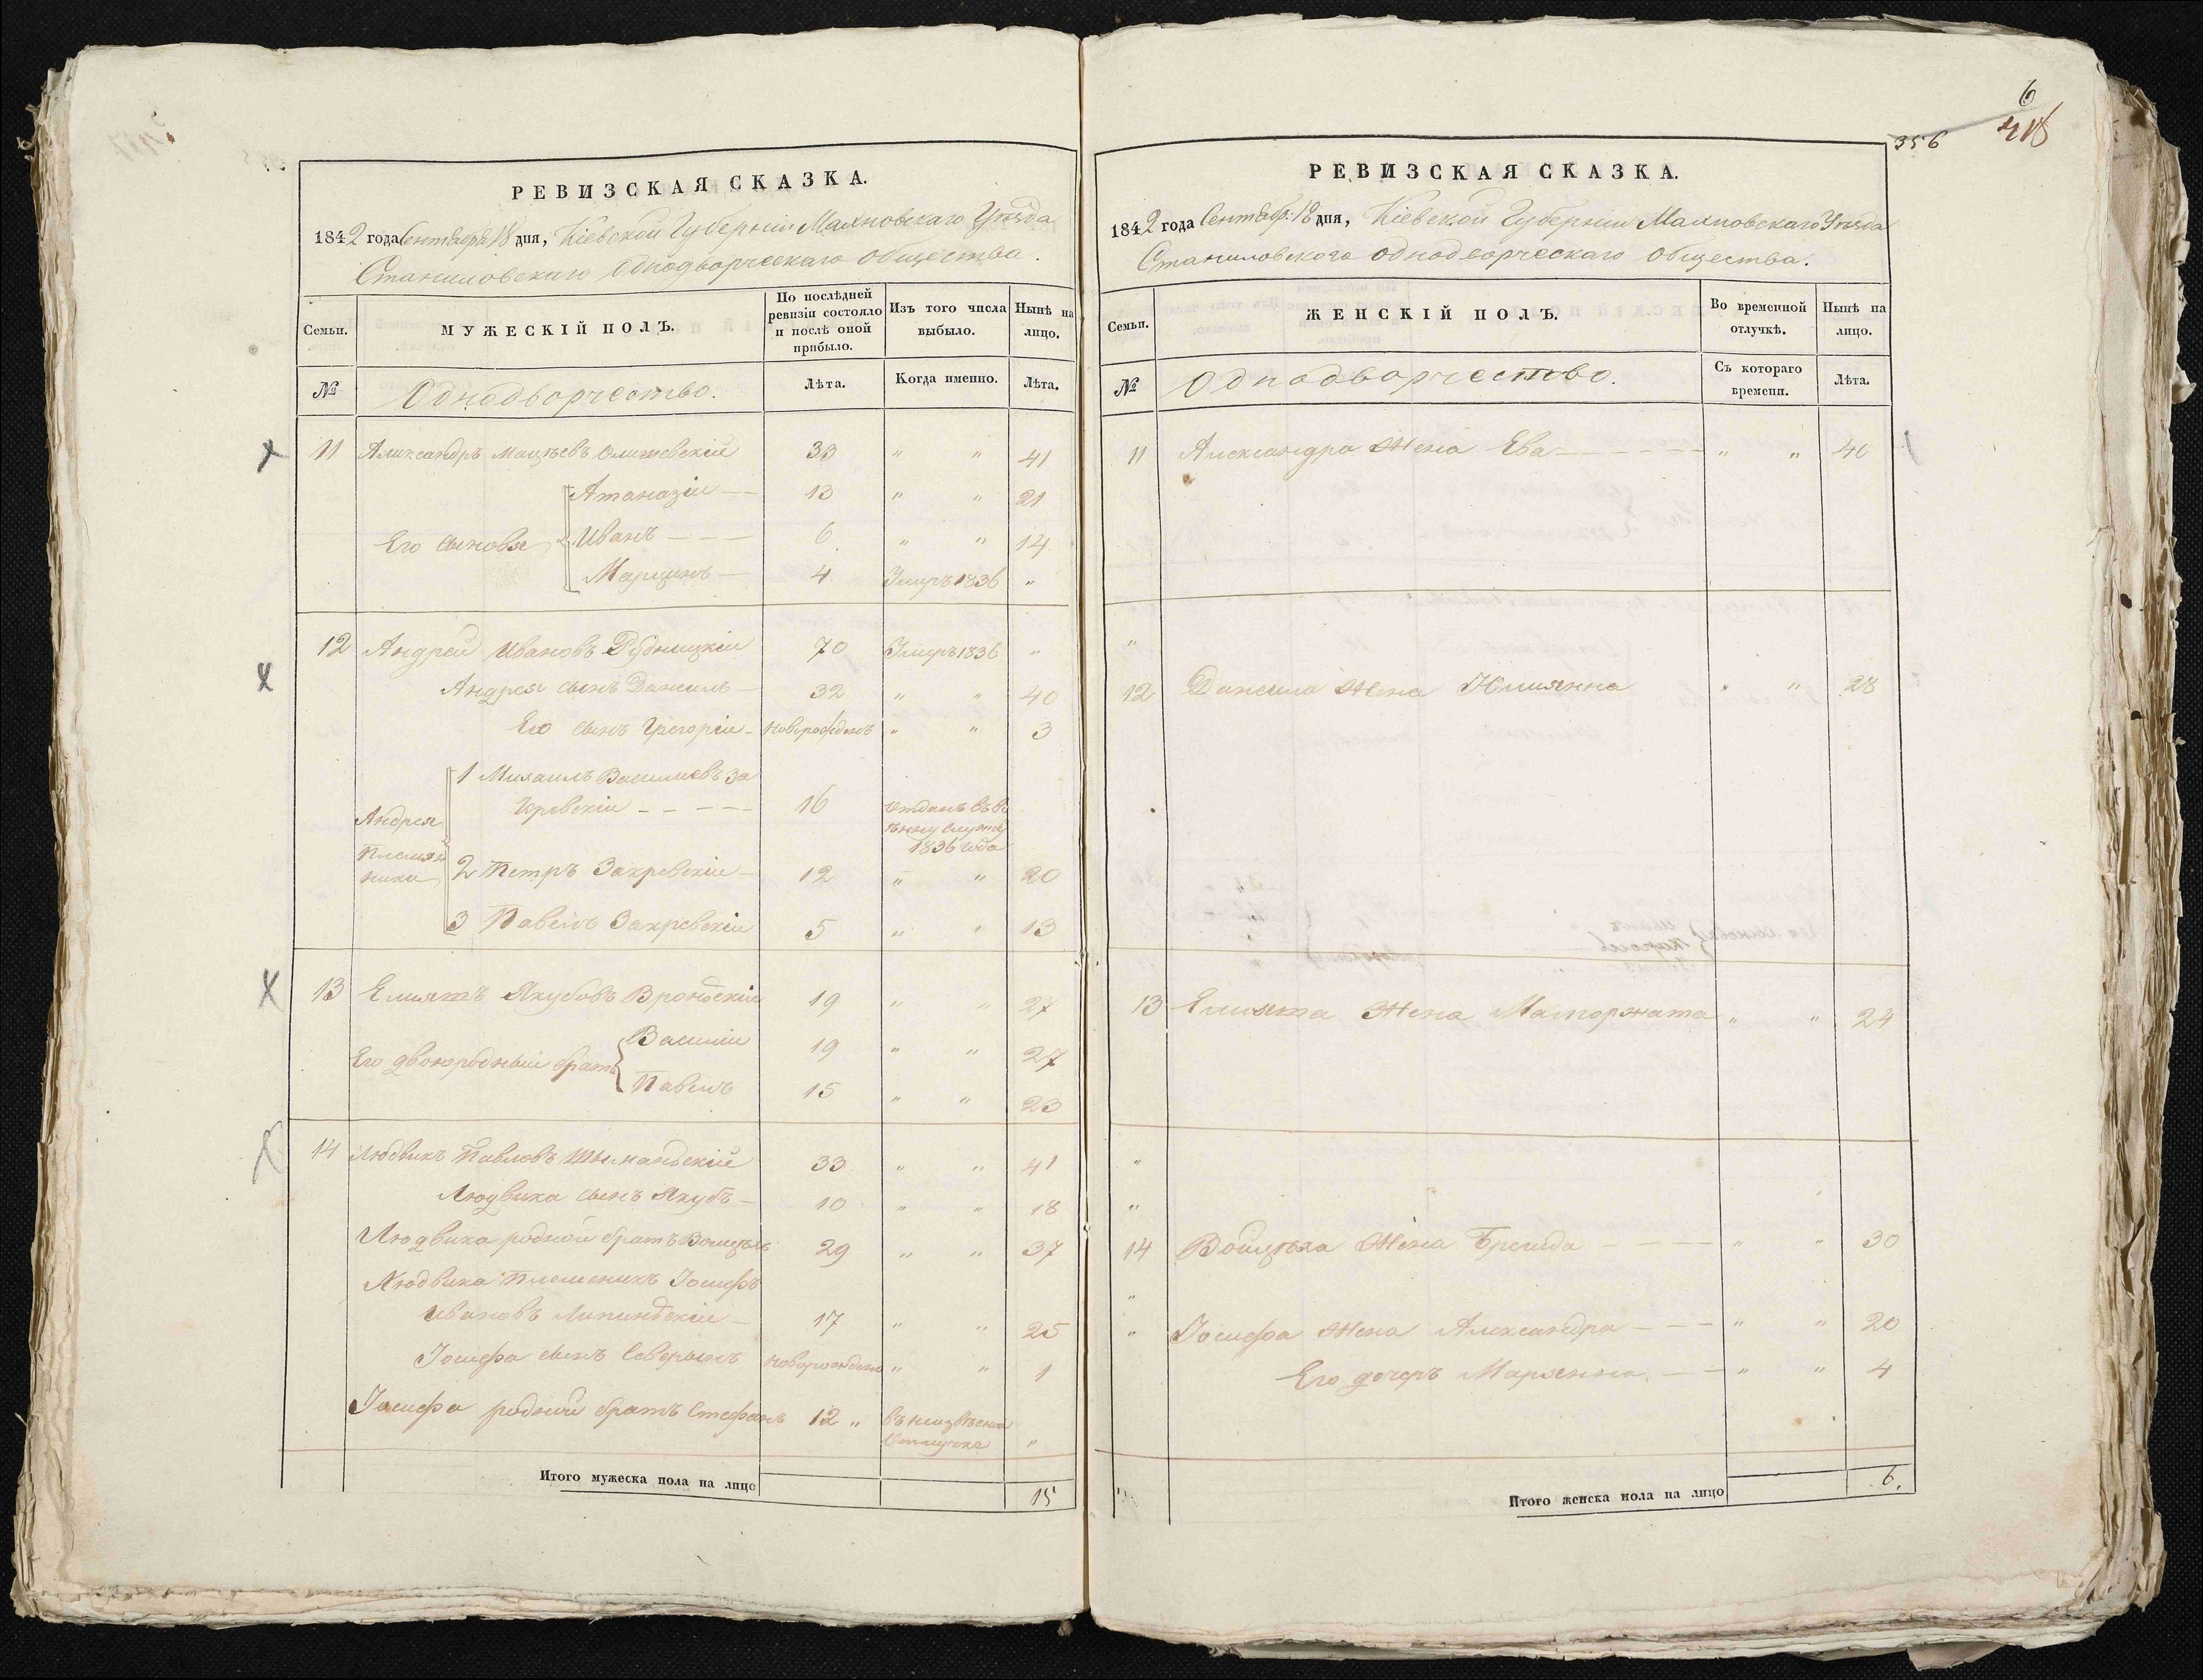 6
418
356
РЕВИЗСКАЯ СКАЗКА.
1842 года Сентября 18 дня, Кіевской Губерніи Махновскаго Уѣзда
Станиловскаго Однодворческаго Общества.
Семьи.
МУЖЕСКІЙ ПОЛЪ.
По послѣдней ревизіи состояло и послѣ оной прибыло.
Изъ того числа выбыло.
Нынѣ на лицо.
№
Однодворчество.
Лѣта.
Когда именно.
Лѣта.
11 Александръ Мацѣевъ 33 " " 41
Атаназіи — 13 " " 21
Его сыновья Иванъ — — — 6 " " 14
Марцинъ — 4 Умеръ 1836 "
12 Андрей Ивановъ Рудницкіи 70 Умеръ 1836 "
Андрея сынъ Данилъ — 32 " " 40
Его сынъ Григоріи — новорожденъ " " 3
1 Михаилъ Василіевъ За
кревскіи — — — — 16 Отданъ въ во
Андрея енну служб
1836 года
Племян
ники 2 Петръ Закревскіи — 12 " " 20
3 Павелъ Закревскіи 5 " " 13
13 Якубовъ Вронскіи 19 " " 27
Василіи 19 " " 27
Его двоюродныи братъ
Павелъ 15 " " 23
14 Людвикъ Павловъ Шымандскій 33 " " 41
Людвика сынъ Якубъ — 10 " " 18
Людвика родной братъ Войцѣхъ 29 " " 37
Людвика племеникъ Іосифъ
Ивановъ Липиндскіи — 17 " " 25
Іосифа сынъ Северынъ новорожденъ " " 1
Іосифа родной братъ Стефанъ 12 " въ неизвѣсной
Отлучке "
Итого мужеска пола на лицо 15
РЕВИЗСКАЯ СКАЗКА.
1842 года Сентябр: 18 дня, Кіевской Губерніи Махновскаго Уѣзда
Станиловскаго Однодворческаго Общества.
Семьи.
ЖЕНСКІЙ ПОЛЪ.
Во временной отлучкѣ.
Нынѣ на лицо.
№
Однодворчество.
Съ котораго времени.
Лѣта.
11 Александра Жена Ева — — — — — " " 40
"
12 Данила Жена Юлиянна " " 28
13 Жена Малгоржата " " 24
"
"
14 Войцѣха Жена Бригида — — — " " 30
"
" Іосифа Жена Александра — — — " " 20
Его дочеръ Марянна — — " " 4
Итого женска пола на лицо 6.